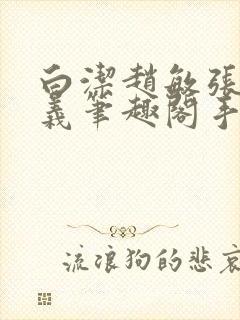 白潔趙敏張
義筆趣閣手
流浪狗的悲哀